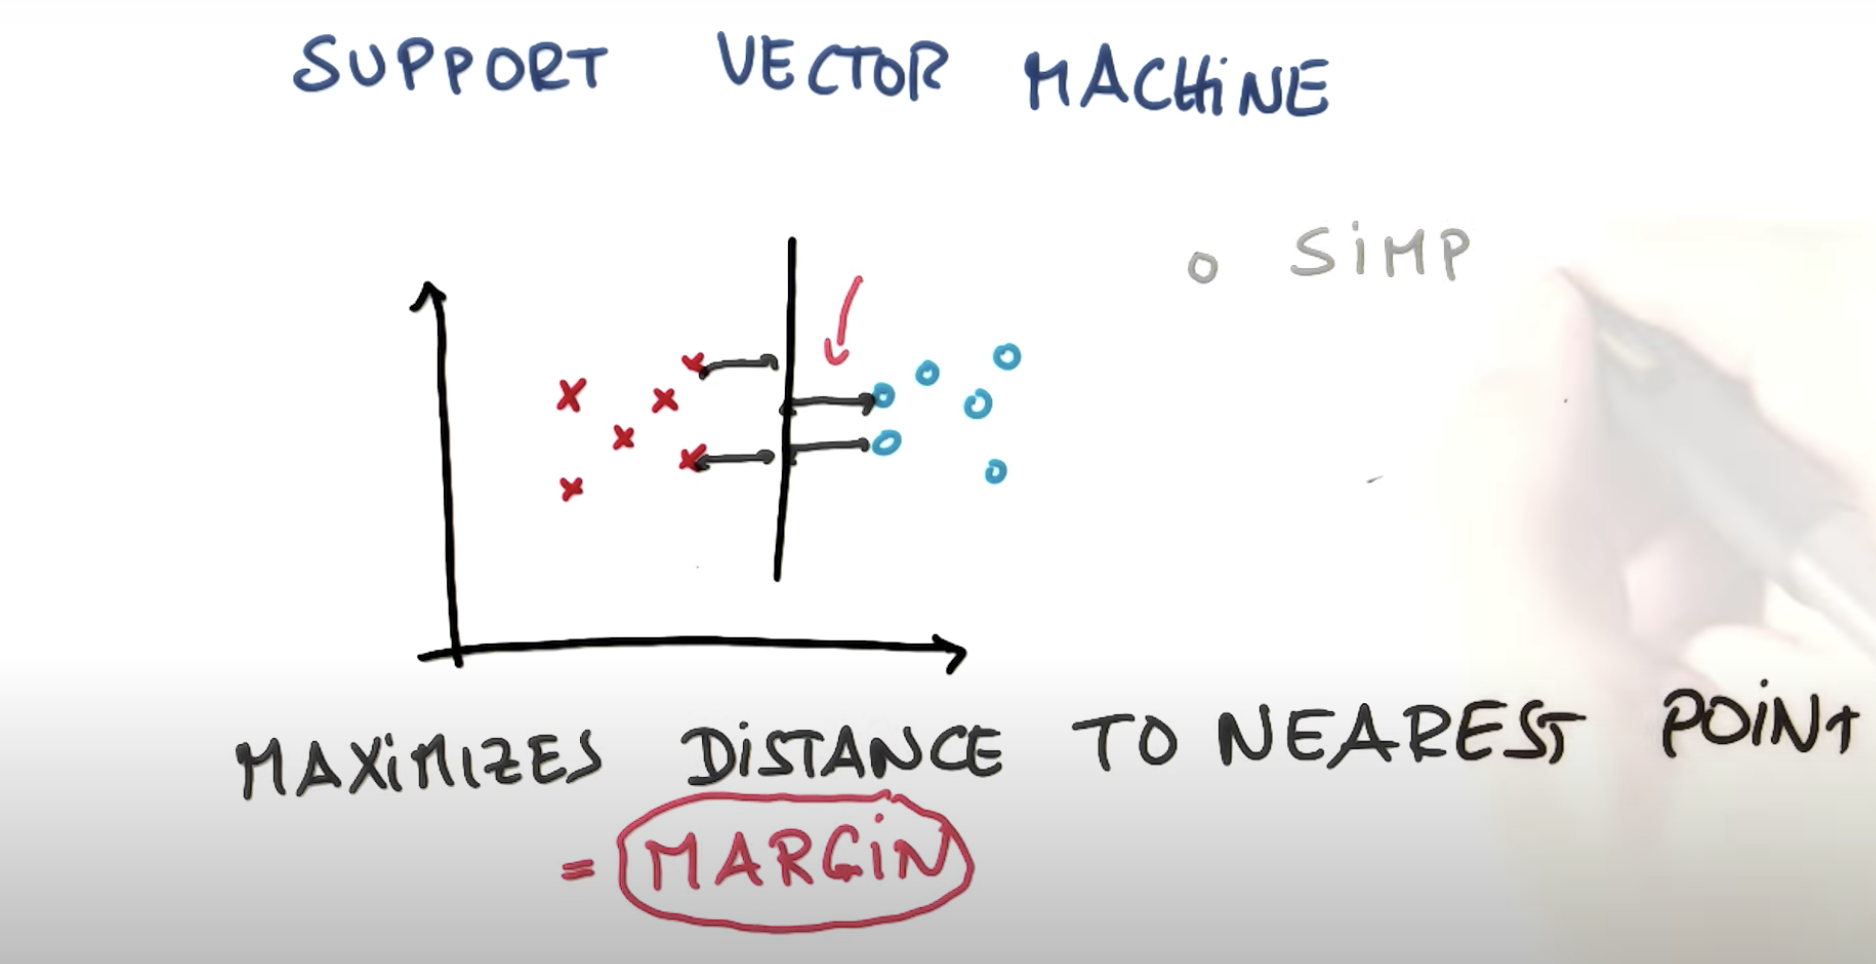 SUPPORT VECTOR MACHINE
o SiMP
MAXiMIZES DiSTANCE TO NEAREST POiNT
= MARGiN